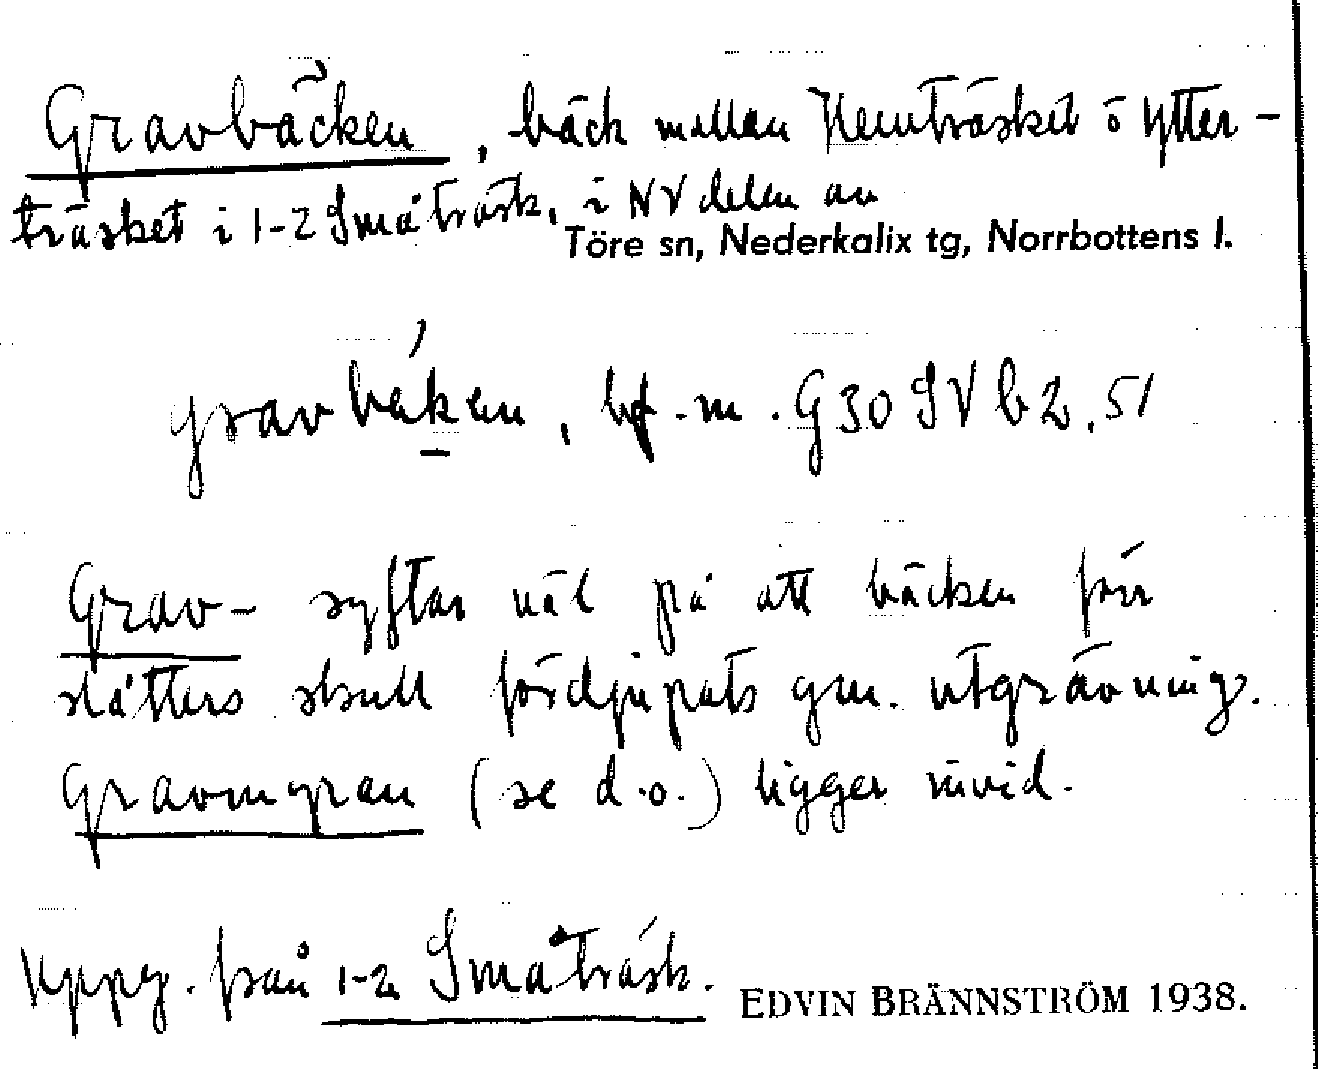 Gravbäcken, bäck mellan Hemträsket o Ytter-
träsket i 1-2 Småträsk, i NV delen av
Töre sn, Nederkalix tg, Norrbottens l.
bf. m. G30 SV b2, 51
Grav- syftar väl på att bäcken förr
slåtters skull fördjupats gm. utgrävning.
Gravmyran (se d.o.) ligger invid.
Uppg. från 1-2 Småträsk.
EDVIN BRÄNNSTRÖM 1938.